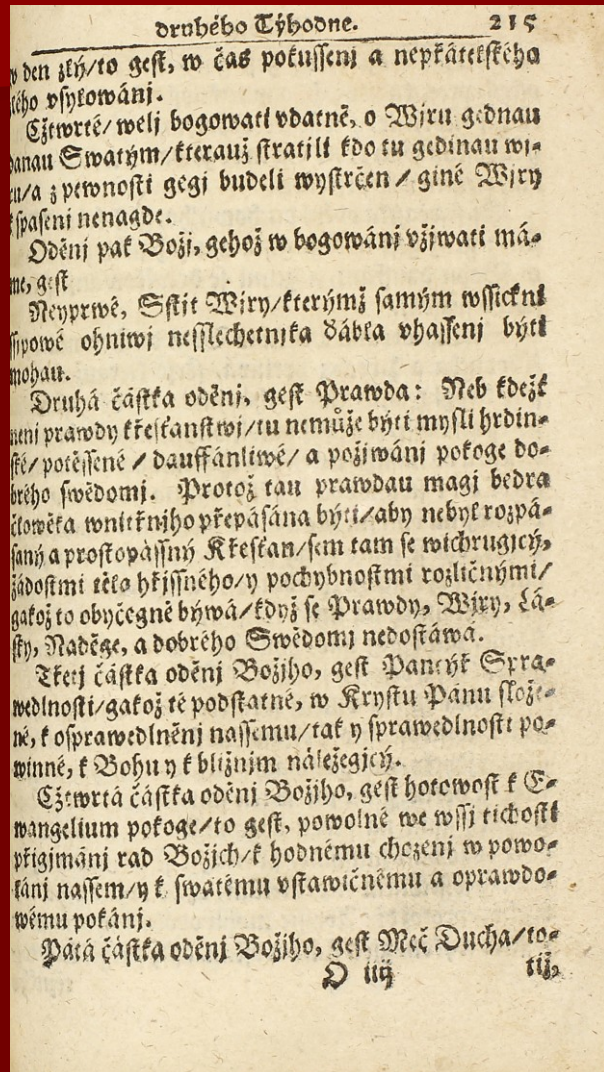 druhého Týhodne. 215
w den zlý/to gest, w čas pokussenj a nepřátelského
vsylowánj.
Cžtwrté/welj bogowati vdatně, o Wjru gednau
danau Swatým/kterauž stratjli kdo tu gedinau wj-
ru/a z pewnosti gegj budeli wystrčen/giné Wjry
k spasenj nenagde.
Oděnj pak Božj, gehož w bogowánj vžjwati má-
me, gest
Neyprwé, Sstjt Wjry/kterýmž samým wssickni
ssipowé ohniwj nesslechetnjka ďábla vhassenj býti
mohau.
Druhá částka oděnj, gest Prawda: Neb kdežk
nenj prawdy křesťanstwj/tu nemůže býti mysli hrdin-
ské/potěssené/dauffánliwé/a požjwánj pokoge do-
brého swědomj. Protož tau prawdau magj bedra
člowěka wnitřnjho přepásána býti/aby nebyl rozpá-
saný a prostopássný Křesťan/sem tam se wichrugjcý,
žádostmi těla hřjssného/y pochybnostmi rozličnými/
gakož to obyčegně býwá/když se Prawdy, Wjry, Lá-
sky, Naděge, a dobrého Swědomj nedostáwá.
Třetj částka oděnj Božjho, gest Pancýř Spra-
wedlnosti/gakož té podstatné, w Krystu Pánu slože-
né, k osprawedlněnj nassemu/tak y sprawedlnosti po-
winné, k Bohu y k bližnjm náležegjcý.
Cžtwrtá částka oděnj Božjho, gest hotowost k E-
wangelium pokoge/to gest, powolné we wssj tichosti
přigjmánj rad Božjch/k hodnému chozenj w powo-
lánj nassem/y k swatému vstawičnému a oprawdo-
wému pokánj.
Pátá částka oděnj Božjho, gest Meč Ducha/to-
O iiij tiž,